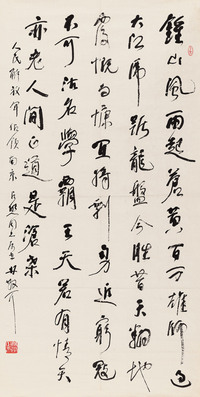 鍾山風雨起蒼黃百万雄師過
大江虎踞龍盤今勝昔天翻地
覆慨而慷宜將剩勇追窮寇
不可沽名學霸王天若有情天
亦老人間正道是滄桑
人民解放軍佔領南京 同志